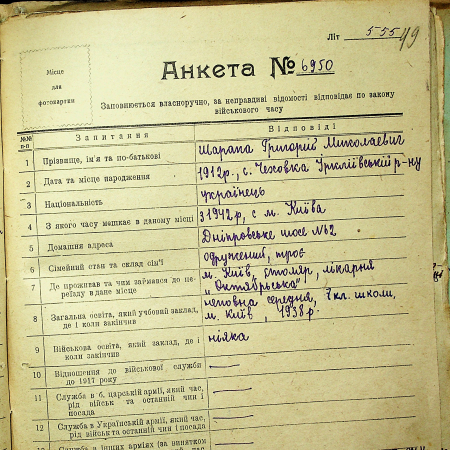 Літ 5-55
49
Місце
для
фотокартки
Анкета № 6950
Заповнюється власноручно, за неправдиві відомості відповідає по закону
військового часу
№№
п-п
Запитання
Відповіді
1 Прізвище, ім'я та по-батькові
Шарапа Григорій Миколаєвич
2 Дата та місце народження
1912р., с. Чеховка Іркліївській р-ну
3 Національність
українець
4 З якого часу мешкає в даному місці
з 1942р, с м. Київа
5 Домашня адреса
Дніпровське шосе №2
6 Сімейний стан та склад сім'ї
одружений, троє
7 Де проживав та чим займався до переїзду в дане місце
м. Київ, столяр, лікарня
„Октябрьська"
8 Загальна освіта, який учбовий заклад,
де і коли закінчив
неповна середня, 7 кл. школи,
м. Київ, 1938 р.
9 Військова освіта, який заклад, де і
коли закінчив
ніяка
10 Відношення до військової служби
до 1917 року
11 Служба в б. царській армії, який час,
рід військ та останній чин і
посада
12 Служба в Українській армії, який час,
рід військ та останній чин і посада
Служба в інших арміях (за винятком